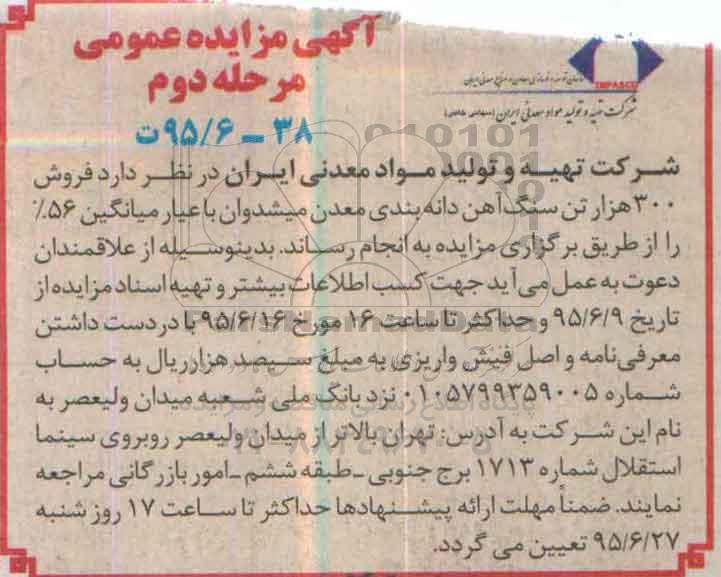 آگهی مزایده عمومی
مرحله دوم
۳۸ – ۹۵/۶ ت
IMPASCO
شرکت تهیه و تولید مواد معدنی ایران
شرکت تهیه و تولید مواد معدنی ایران در نظر دارد فروش
۳۰۰ هزار تن سنگ آهن دانه بندی معدن میشدوان با عیار میانگین ۵۶٪
را از طریق برگزاری مزایده به انجام رساند. بدینوسیله از علاقمندان
دعوت به عمل می آید جهت کسب اطلاعات بیشتر و تهیه اسناد مزایده از
تاریخ ۹۵/۶/۹ و حداکثر تا ساعت ۱۶ مورخ ۹۵/۶/۱۶ با در دست داشتن
معرفی نامه و اصل فیش واریزی به مبلغ سیصد هزار ریال به حساب
شماره ۰۱۰۵۷۹۹۳۵۹۰۰۵ نزد بانک ملی شعبه میدان ولیعصر به
نام این شرکت به آدرس: تهران بالاتر از میدان ولیعصر روبروی سینما
استقلال شماره ۱۷۱۳ برج جنوبی – طبقه ششم – امور بازرگانی مراجعه
نمایند. ضمناً مهلت ارائه پیشنهادها حداکثر تا ساعت ۱۷ روز شنبه
۹۵/۶/۲۷ تعیین می گردد.